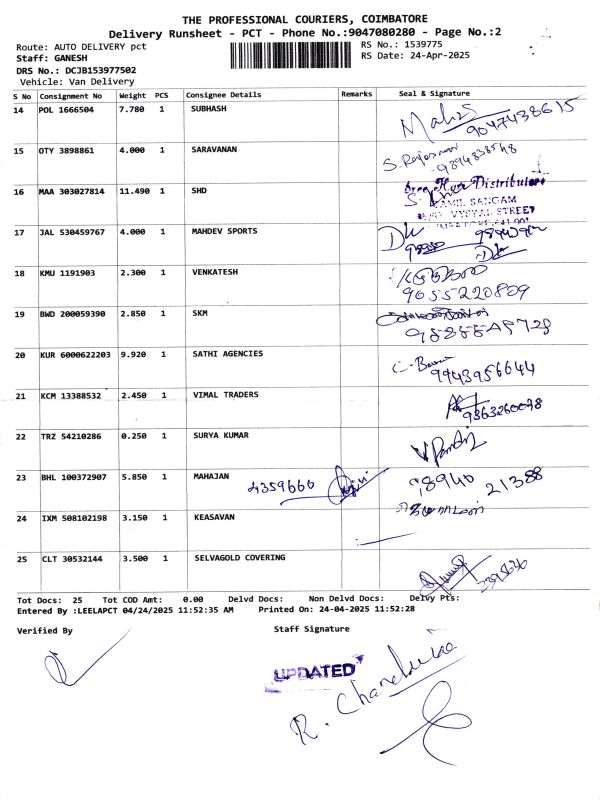 THE PROFESSIONAL COURIERS, COIMBATORE
Delivery Runsheet - PCT - Phone No.:9047080280 - Page No.:2
Route: AUTO DELIVERY pct RS No.: 1539775
Staff: GANESH RS Date: 24-Apr-2025
DRS No.: DCJB153977502
Vehicle: Van Delivery
S No Consignment No Weight PCS Consignee Details Remarks Seal & Signature
14 POL 1666504 7.780 1 SUBHASH
9047438615
15 OTY 3898861 4.000 1 SARAVANAN
16 MAA 303027814 11.490 1 SHD
Distributors
TAMIL SANGAM
STREET
17 JAL 530459767 4.000 1 MAHDEV SPORTS
18 KMU 1191903 2.300 1 VENKATESH
9055220809
19 BWD 200059390 2.850 1 SKM
20 KUR 6000622203 9.920 1 SATHI AGENCIES
9943956644
21 KCM 13388532 2.450 1 VIMAL TRADERS
22 TRZ 54210286 0.250 1 SURYA KUMAR
23 BHL 100372907 5.850 1 MAHAJAN
4359660
21388
24 IXM 508102198 3.150 1 KEASAVAN
25 CLT 30532144 3.500 1 SELVAGOLD COVERING
Tot Docs: 25 Tot COD Amt: 0.00 Delvd Docs: Non Delvd Docs: Delvy Pts:
Entered By :LEELAPCT 04/24/2025 11:52:35 AM Printed On: 24-04-2025 11:52:28
Verified By Staff Signature
UPDATED